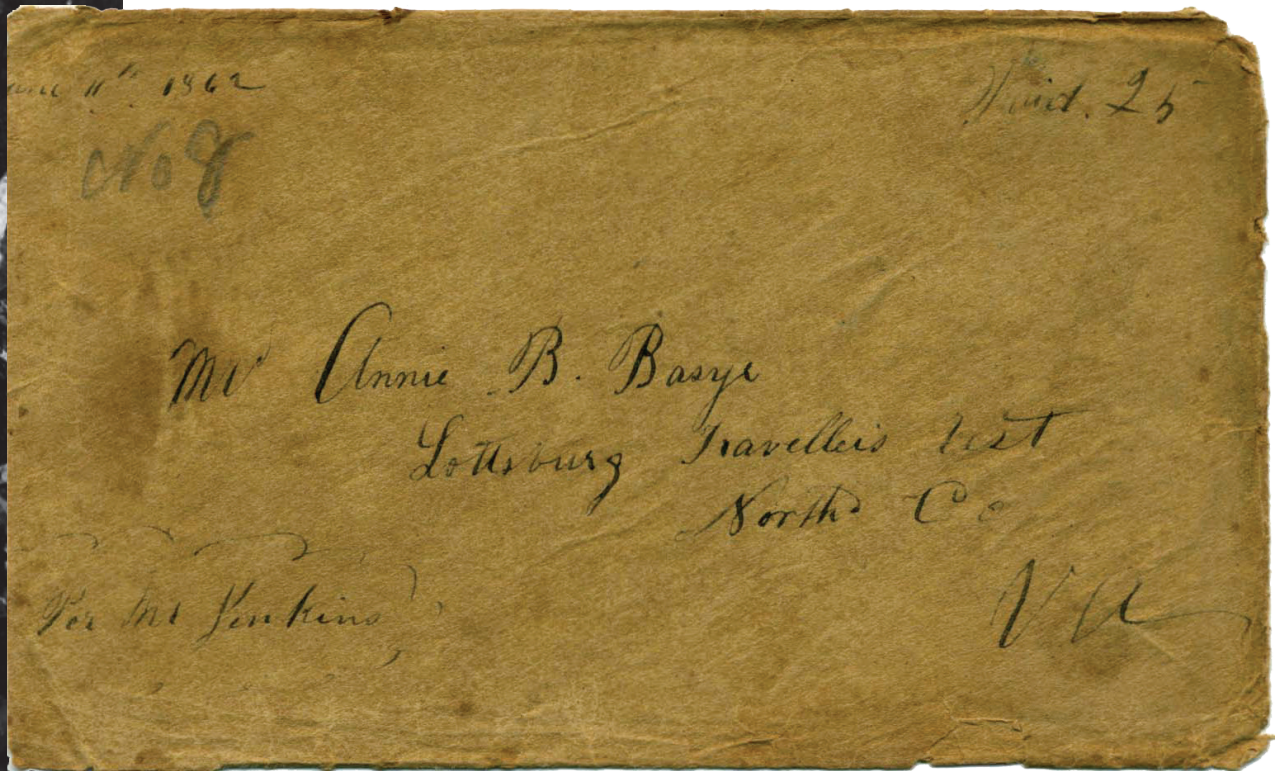 une 11th 1862
Paid. 25
No 8
Mrs Annie B. Basye
Lottsburg Travellers Rest
Northd Co
Va
Per Mr Jenkins